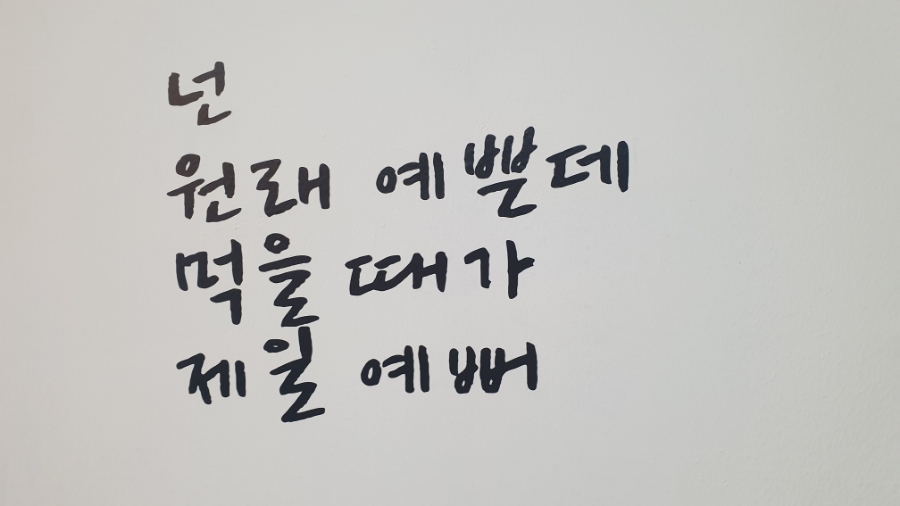 넌
원래 예쁠데
먹을 때가
제일 예뻐